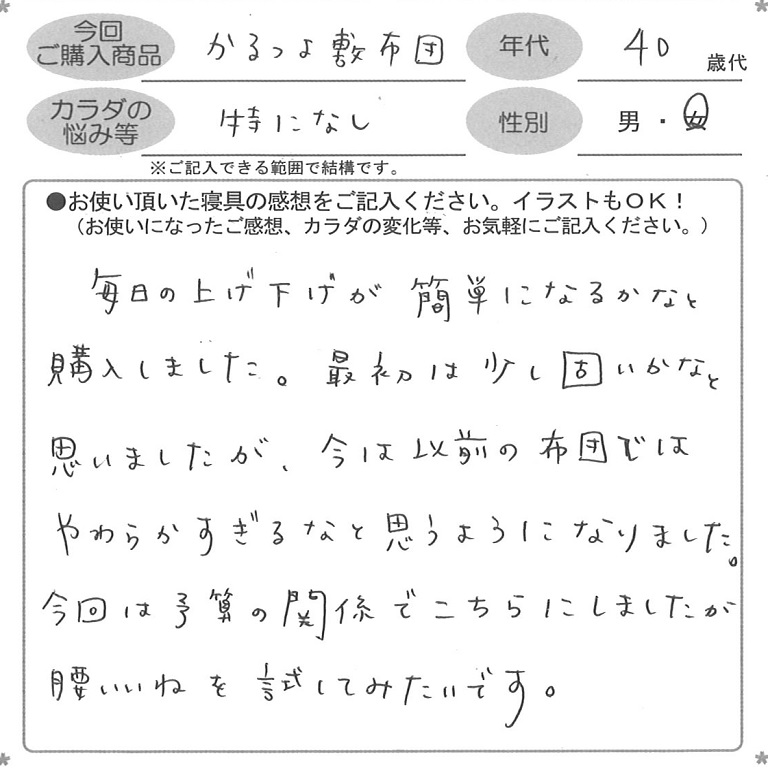 今回
ご購入商品
かるっよ敷布団
年代
40
歳代
カラダの
悩み等
特になし
性別
男・女
※ご記入できる範囲で結構です。
●お使い頂いた寝具の感想をご記入ください。イラストもOK!
（お使いになったご感想、カラダの変化等、お気軽にご記入ください。）
毎日の上げ下げが簡単になるかなと
購入しました。最初は少し固いかなと
思いましたが、今は以前の布団では
やわらかすぎるなと思うようになりました。
今回は予算の関係でこちらにしましたが
腰いいねを試してみたいです。